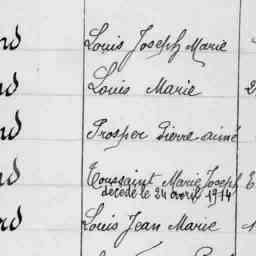 Louis Joseph Marie
Louis Marie
Prosper Pierre aimé
Toussaint Marie Joseph
décédé le 24 avril 1914
Louis Jean Marie